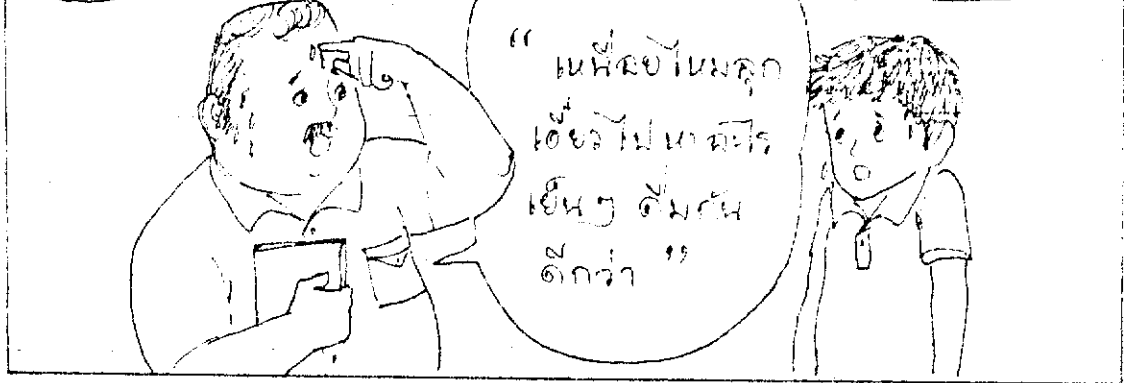 “ เหนื่อยไหมลูก
เดี๋ยวไปหาอะไร
เย็นๆ ดื่มกัน
ดีกว่า ”